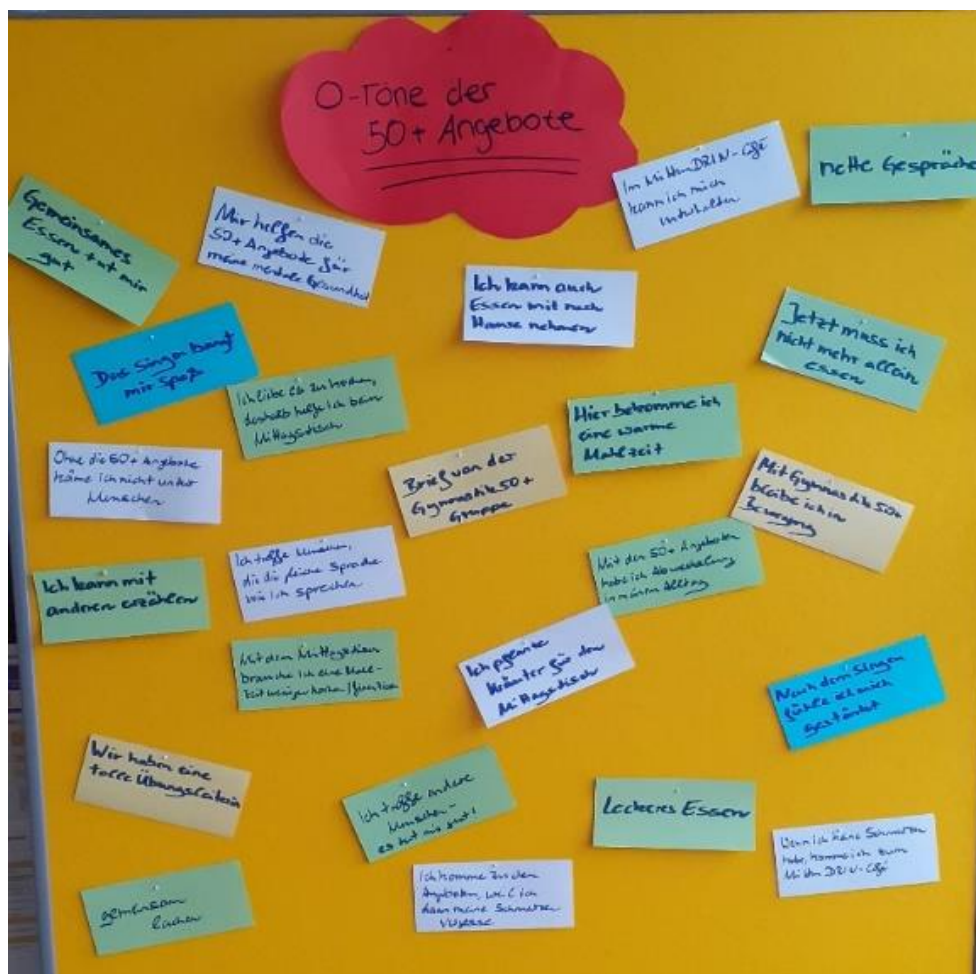 O-Töne der
50+ Angebote
Im MittenDRIN-Café
kann ich mich
unterhalten
nette Gespräche
Gemeinsames
Essen tut mir
gut
Mir helfen die
50+ Angebote für
meine mentale Gesundheit
Ich kann auch
Essen mit nach
Hause nehmen
Jetzt muss ich
nicht mehr allein
essen
Das Singen
mir Spaß
Ich liebe es zu kochen,
deshalb helfe ich beim
Mittagstisch
Hier bekomme ich
eine warme
Mahlzeit
Ohne die 50+ Angebote
käme ich nicht unter
Menschen
Brief von der
Gymnastik 50+
Gruppe
Mit Gymnastik 50+
bleibe ich in
Bewegung
Ich kann mit
anderen erzählen
Ich treffe Menschen,
die die gleiche Sprache
wie ich sprechen
Mit den 50+ Angeboten
habe ich Abwechslung
in meinem Alltag
Mit dem Mittagstisch
brauche ich eine Mahl-
zeit weniger
Ich pflanze
Kräuter für den
Mittagstisch
Nach dem Singen
fühle ich mich
gestärkt
Wir haben eine
tolle Übungsleiterin
Ich treffe andere
Menschen -
es tut mir gut!
Leckeres Essen
Wenn ich keine Schmerzen
habe, komme ich zum
MittenDRIN-Café
gemeinsam
lachen
Ich komme zu den
Angeboten, weil ich
dann meine Schmerzen
vergesse